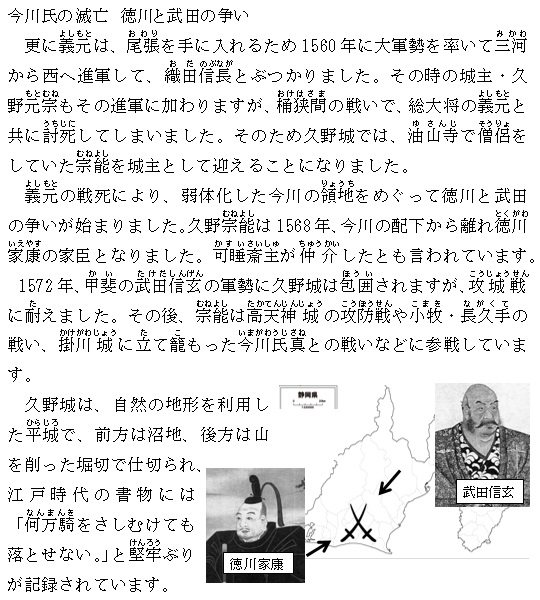 今川氏の滅亡　徳川と武田の争い
　更に義元は、尾張を手に入れるため1560年に大軍勢を率いて三河
から西へ進軍して、織田信長とぶつかりました。その時の城主・久
野元宗もその進軍に加わりますが、桶狭間の戦いで、総大将の義元と
共に討死してしまいました。そのため久野城では、油山寺で僧侶を
していた宗能を城主として迎えることになりました。
　義元の戦死により、弱体化した今川の領地をめぐって徳川と武田
の争いが始まりました。久野宗能は1568年、今川の配下から離れ徳川
家康の家臣となりました。可睡斎主が仲介したとも言われています。
　1572年、甲斐の武田信玄の軍勢に久野城は包囲されますが、攻城戦
に耐えました。その後、宗能は高天神城の攻防戦や小牧・長久手の
戦い、掛川城に立て籠もった今川氏真との戦いなどに参戦していま
す。
　久野城は、自然の地形を利用し
た平城で、前方は沼地、後方は山
を削った堀切で仕切られ、
江戸時代の書物には
「何万騎をさしむけても
落とせない。」と堅牢ぶり
が記録されています。
静岡県
武田信玄
徳川家康